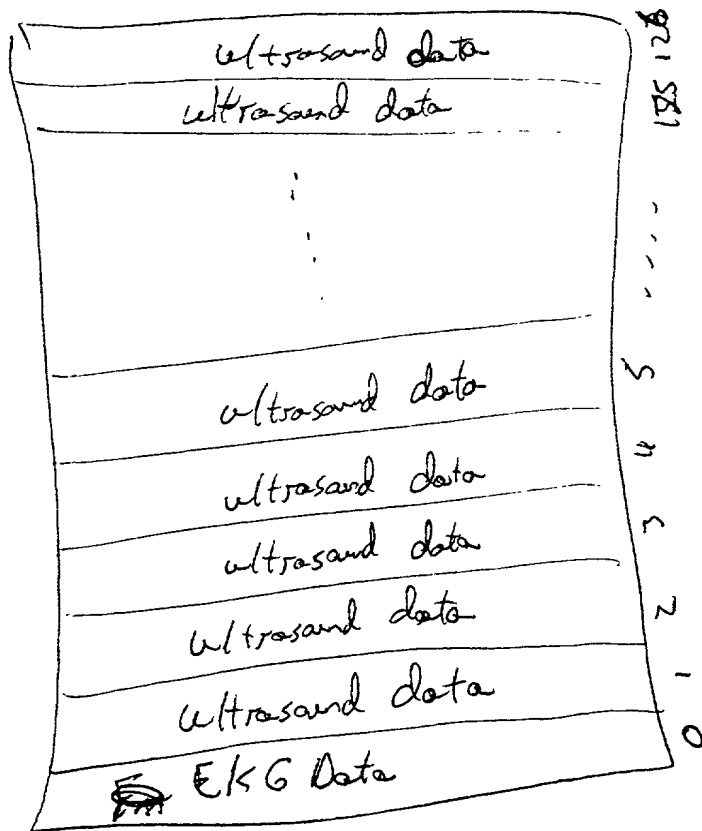 ultrasound data 128
ultrasound data
5
ultrasound data
4
ultrasound data
3
ultrasound data
2
ultrasound data
1
ultrasound data
0
EKG Data